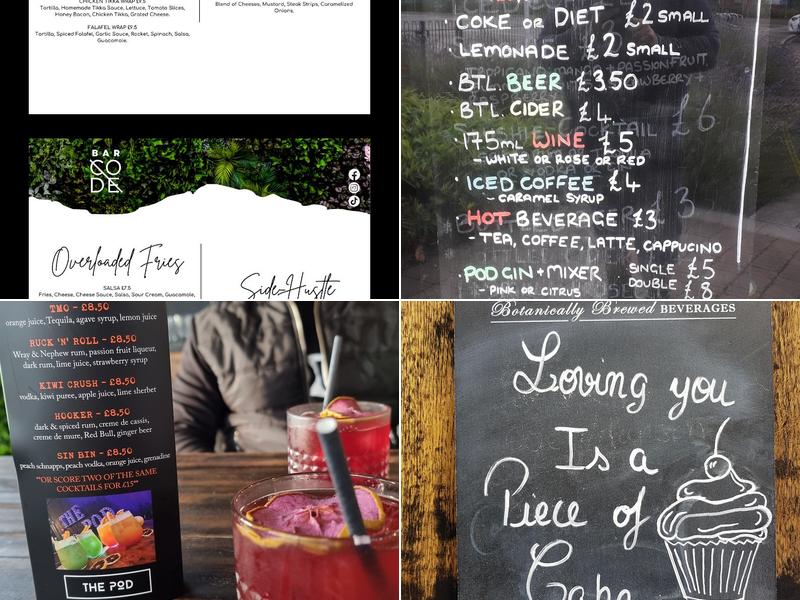 CHICKEN TIKKA WRAP £9.5
Tortilla, Homemade Tikka Sauce, Lettuce, Tomato Slices,
Honey Bacon, Chicken Tikka, Grated Cheese.
FALAFEL WRAP £9.5
Tortilla, Spiced Falafel, Garlic Sauce, Rocket, Spinach, Salsa,
Guacamole.
Blend of Cheeses, Mustard, Steak Strips, Caramelized
Onions.
BAR
CO
DE
Overloaded Fries
SALSA £7.5
Fries, Cheese, Cheese Sauce, Salsa, Sour Cream, Guacamole,
Side-Hustle
· COKE OR DIET £2 SMALL
· LEMONADE £2 SMALL
· BTL. BEER £3.50
· BTL. CIDER £4
· 175ML WINE £5
- WHITE OR ROSE OR RED
· ICED COFFEE £4
- CARAMEL SYRUP
· HOT BEVERAGE £3
- TEA, COFFEE, LATTE, CAPPUCINO
· POD GIN + MIXER SINGLE £5
- PINK OR CITRUS DOUBLE £8
TMO - £8.50
orange juice, Tequila, agave syrup, lemon juice
RUCK 'N' ROLL - £8.50
Wray & Nephew rum, passion fruit liqueur,
dark rum, lime juice, strawberry syrup
KIWI CRUSH - £8.50
vodka, kiwi puree, apple juice, lime sherbet
HOOKER - £8.50
dark & spiced rum, creme de cassis,
creme de mure, Red Bull, ginger beer
SIN BIN - £8.50
peach schnapps, peach vodka, orange juice, grenadine
"OR SCORE TWO OF THE SAME
COCKTAILS FOR £15"
THE POD
THE POD
Botanically Brewed BEVERAGES
Loving you
Is a
Piece of